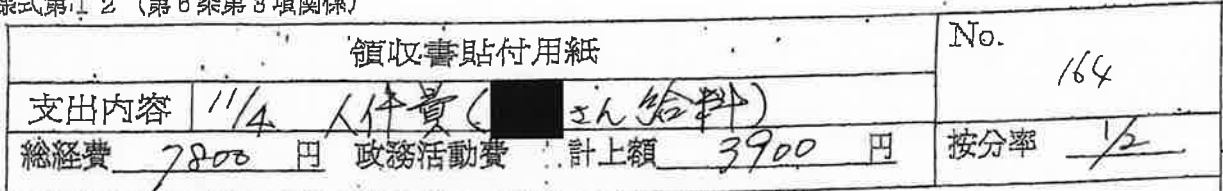 様式第12（第6条第3項関係）
領収書貼付用紙
No. 164
支出内容 11/4 人件費（さん給料）
総経費 7800 円 政務活動費 計上額 3900 円 按分率 1/2